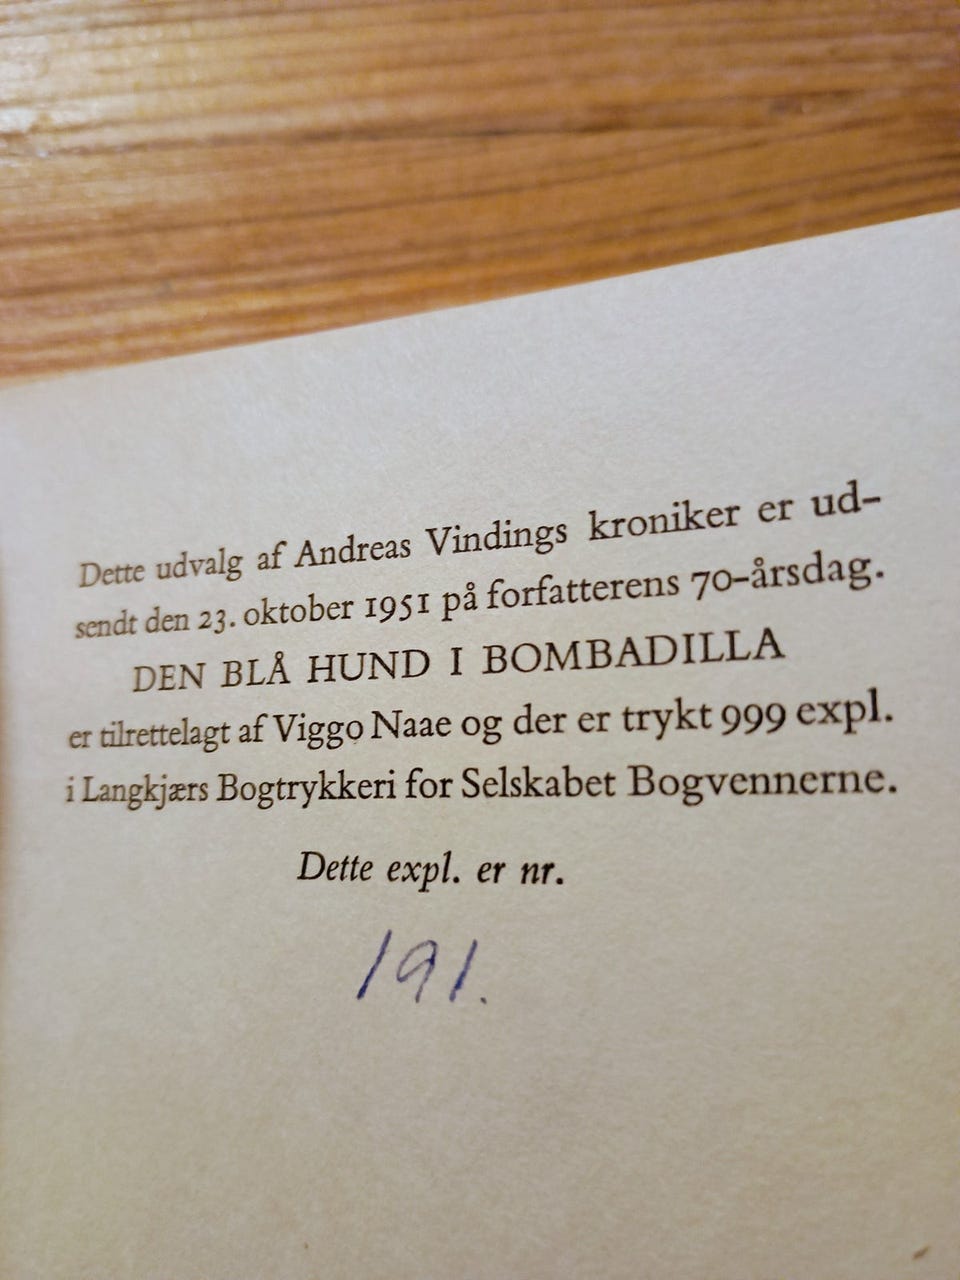 Dette udvalg af Andreas Vindings kroniker er ud-
sendt den 23. oktober 1951 på forfatterens 70-årsdag.
DEN BLÅ HUND I BOMBADILLA
er tilrettelagt af Viggo Naae og der er trykt 999 expl.
i Langkjærs Bogtrykkeri for Selskabet Bogvennerne.
Dette expl. er nr.
191.